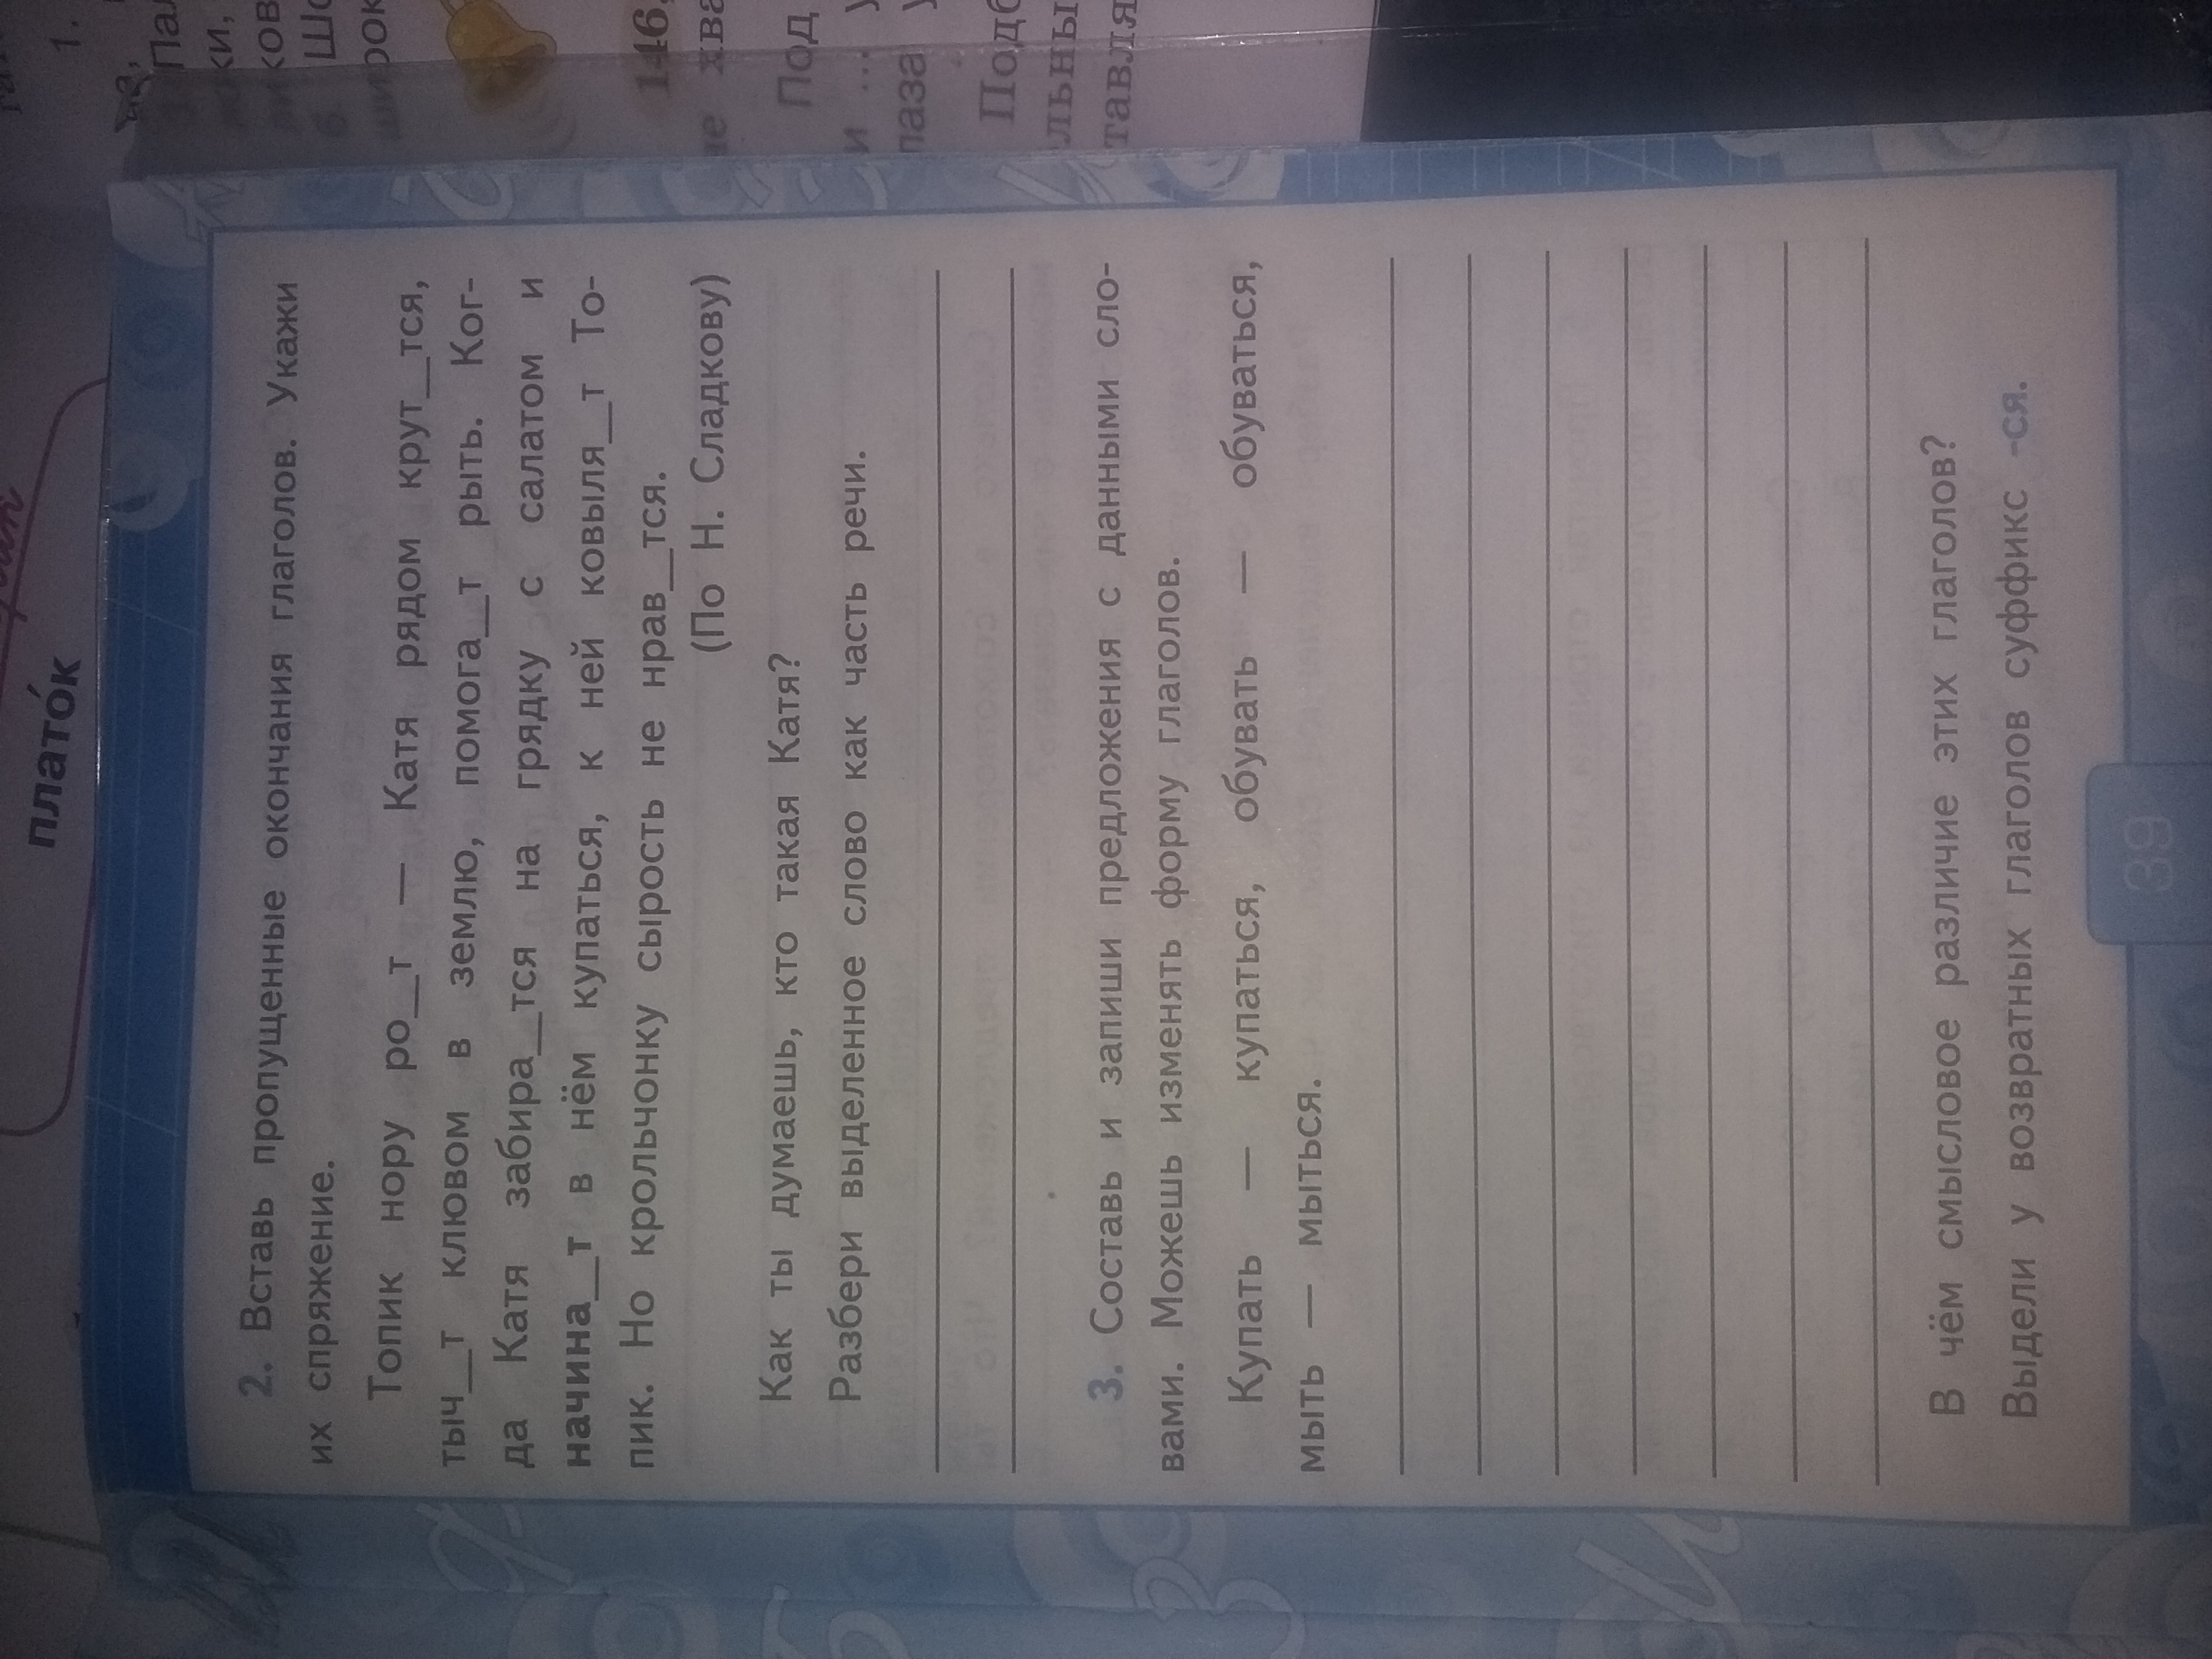 платóк
2. Вставь пропущенные окончания глаголов. Укажи
их спряжение.
Топик нору ро__т — Катя рядом крут__тся,
тыч__т клювом в землю, помога__т рыть. Ког-
да Катя забира__тся на грядку с салатом и
начина__т в нём купаться, к ней ковыля__т То-
пик. Но крольчонку сырость не нрав__тся.
(По Н. Сладкову)
Как ты думаешь, кто такая Катя?
Разбери выделенное слово как часть речи.
3. Составь и запиши предложения с данными сло-
вами. Можешь изменять форму глаголов.
Купать — купаться, обувать — обуваться,
мыть — мыться.
В чём смысловое различие этих глаголов?
Выдели у возвратных глаголов суффикс -ся.
39
1.
146,
Под
и ...
лаза
Подб
льны
тавля